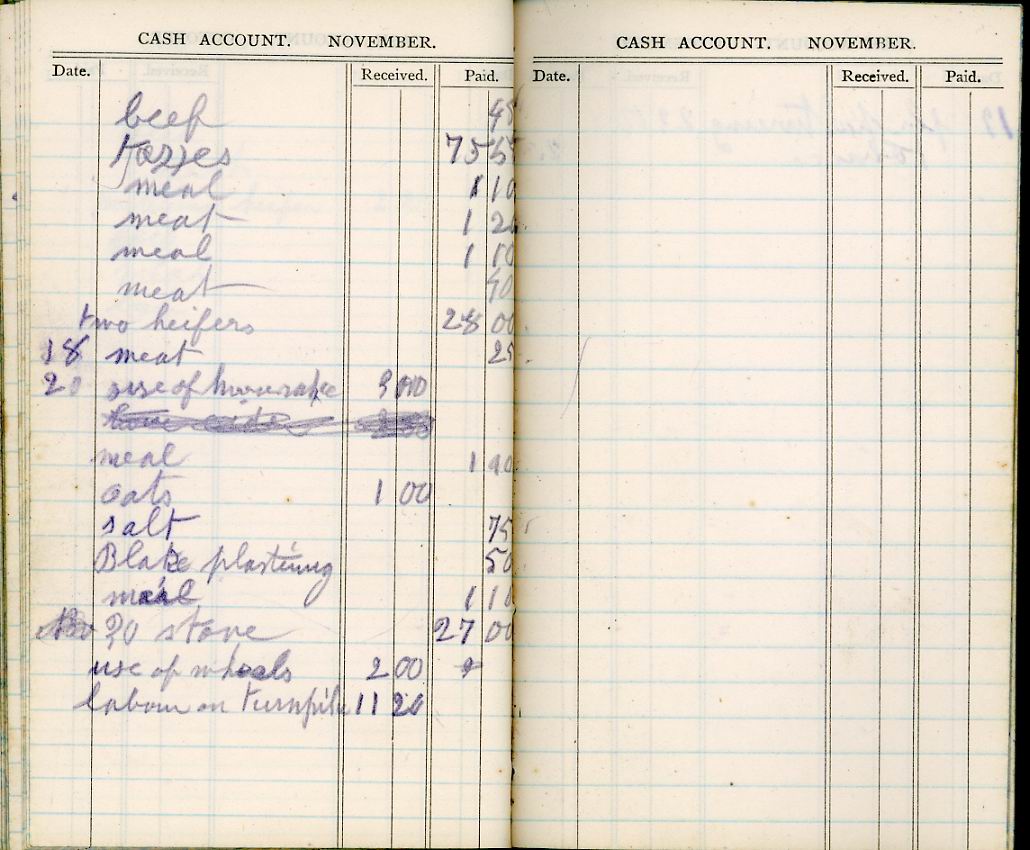 CASH ACCOUNT. NOVEMBER.
Date. Received. Paid.
beef 45
75 55
meal 1 10
meat 1 20
meal 1 10
meat 40
two heifers 28 00
18 meat 25
20 use of horserake 3 00
meal 1 40
oats 1 00
salt 75
Blake plastering 50
meal 1 10
30 stove 27 00
use of wheels 2 00
labour on turnpike 11 20
CASH ACCOUNT. NOVEMBER.
Date. Received. Paid.